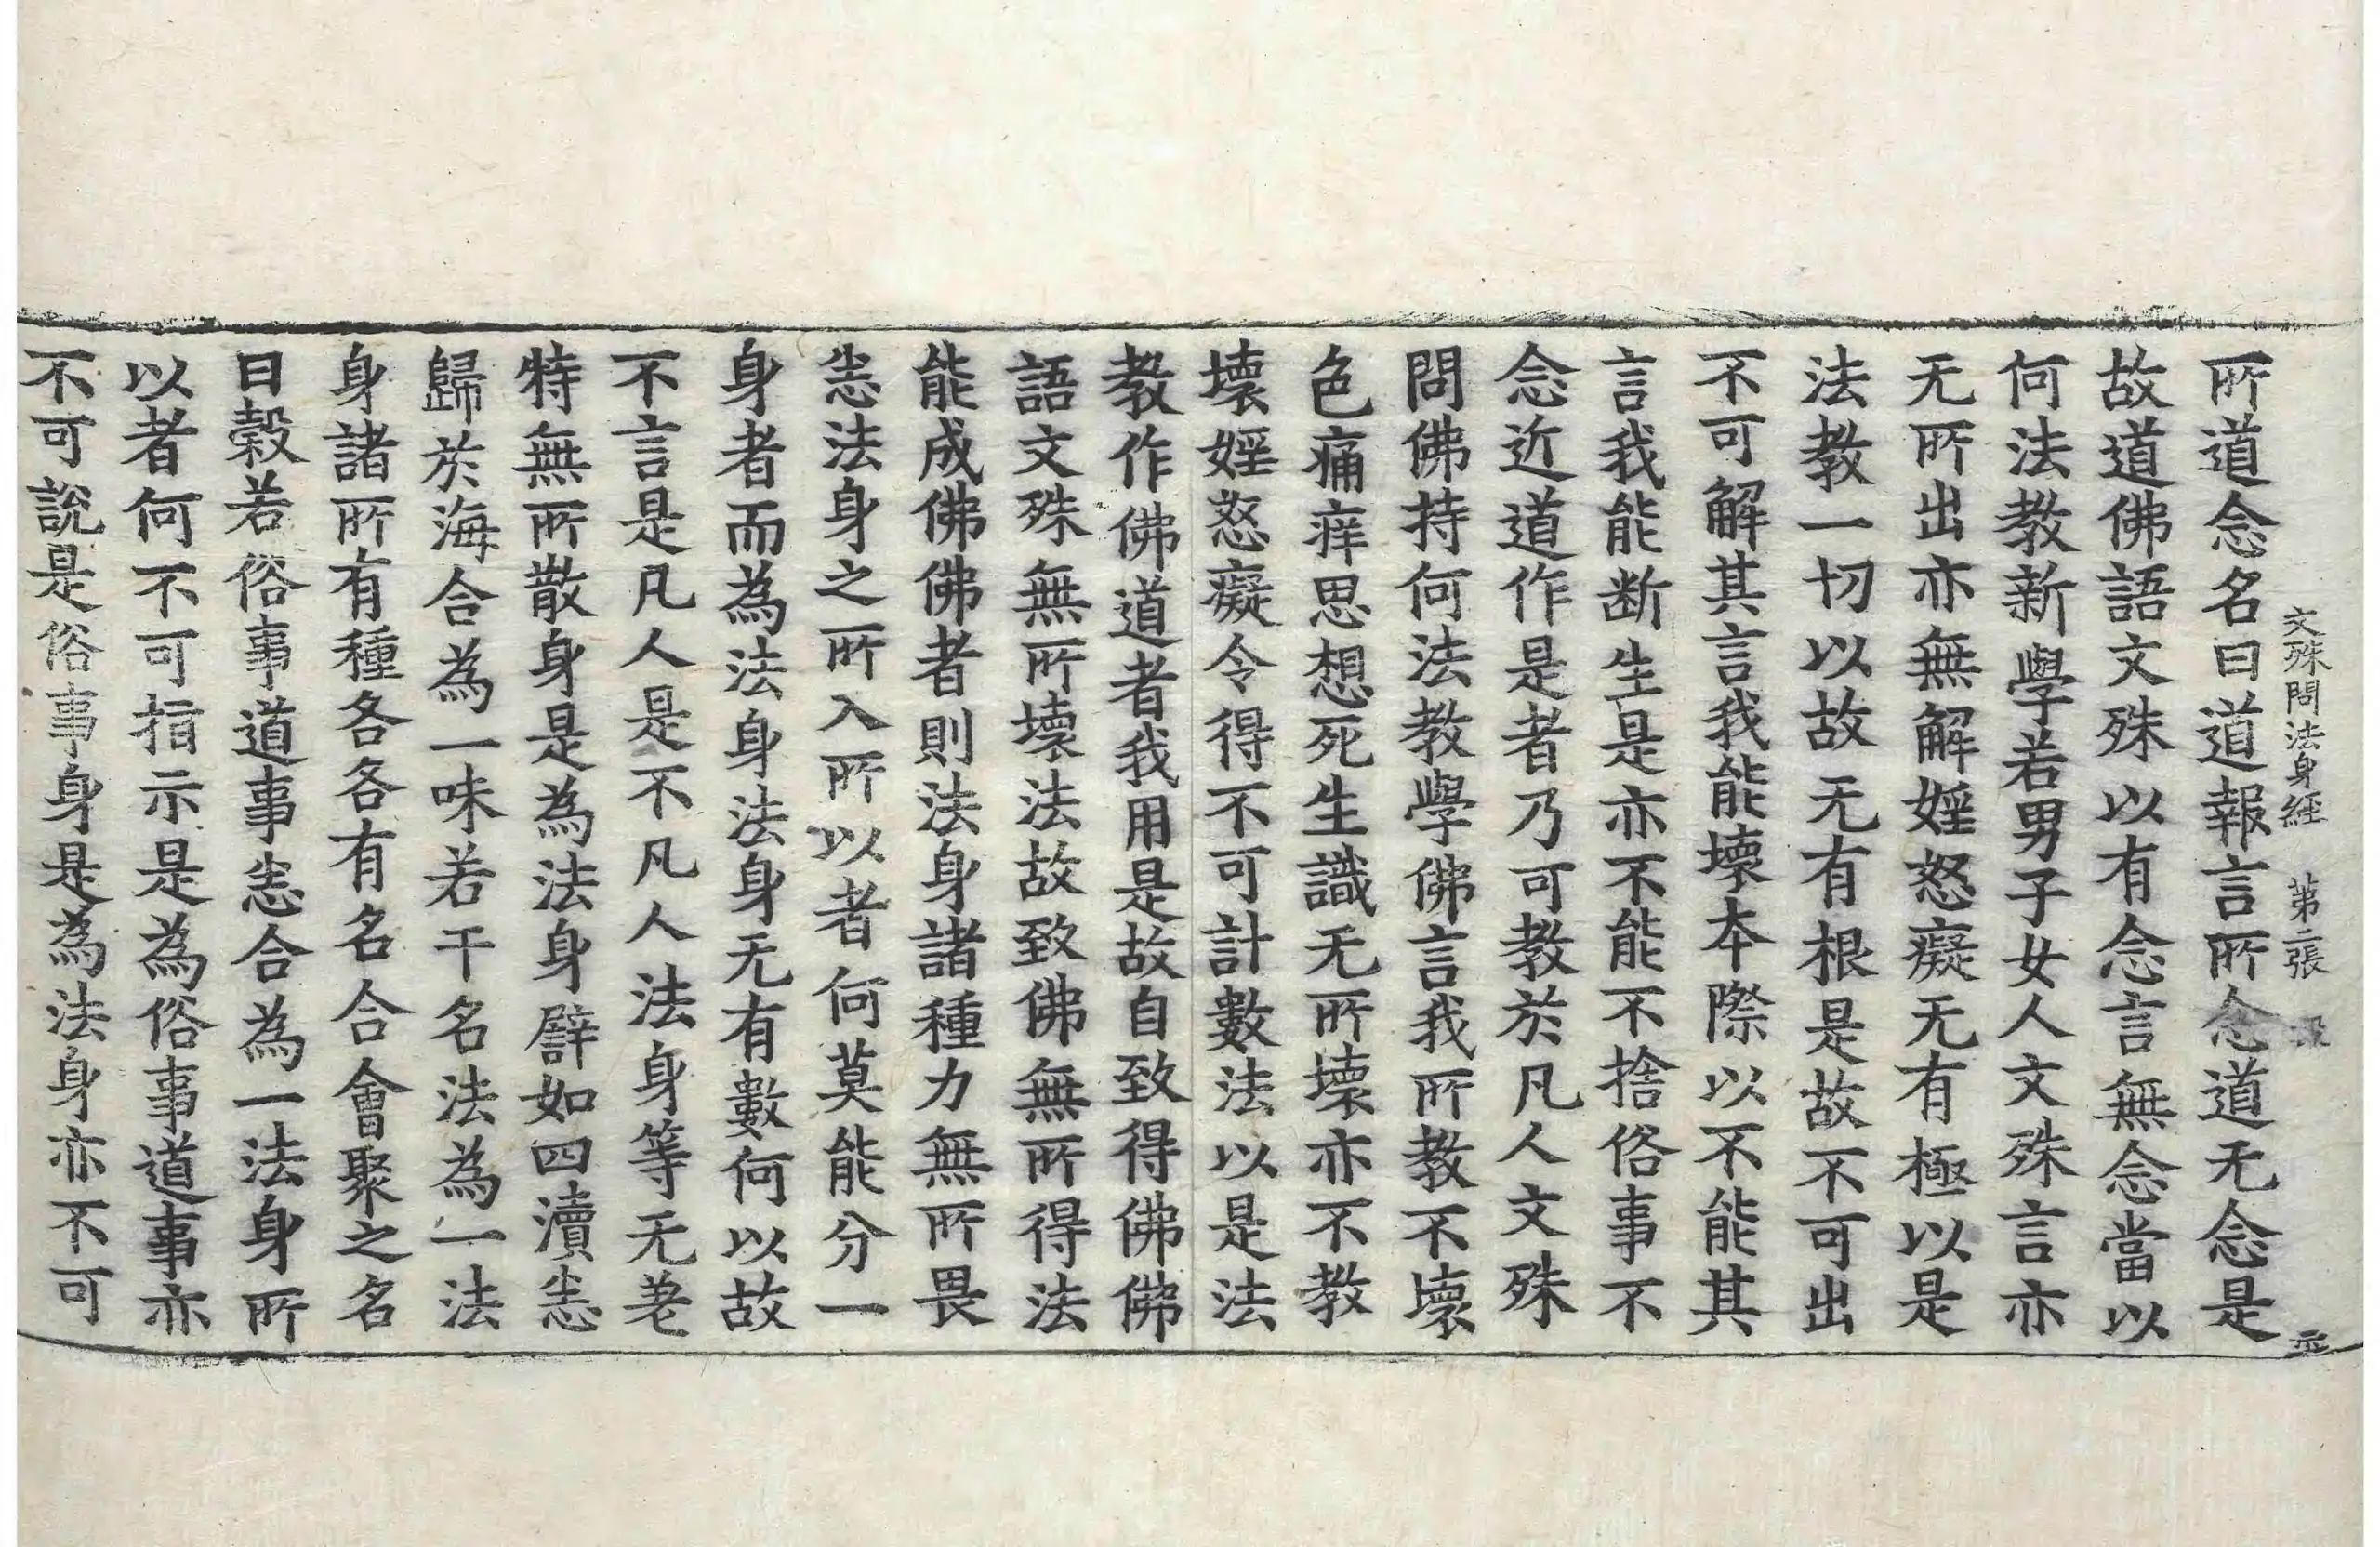 文殊問法身經　第二張　示
所道念名曰道報言所念道无念是
故道佛語文殊以有念言無念當以
何法教新學若男子女人文殊言亦
无所出亦無解婬怒癡无有極以是
法教一切以故无有根是故不可出
不可解其言我能壞本際以不能其
言我能断生是亦不能不捨俗事不
念近道作是者乃可教於凡人文殊
問佛持何法教學佛言我所教不壞
色痛痒思想死生識无所壞亦不教
壞婬怒癡令得不可計數法以是法
教作佛道者我用是故自致得佛佛
語文殊無所壞法故致佛無所得法
能成佛佛者則法身諸種力無所畏
恚法身之所入所以者何莫能分一
身者而為法身法身无有數何以故
不言是凡人是不凡人法身等无差
特無所散身是為法身譬如四瀆恚
歸於海合為一味若干名法為一法
身諸所有種各各有名合會聚之名
曰穀若俗事道事恚合為一法身所
以者何不可指示是為俗事道事亦
不可說是俗事身是為法身亦不可